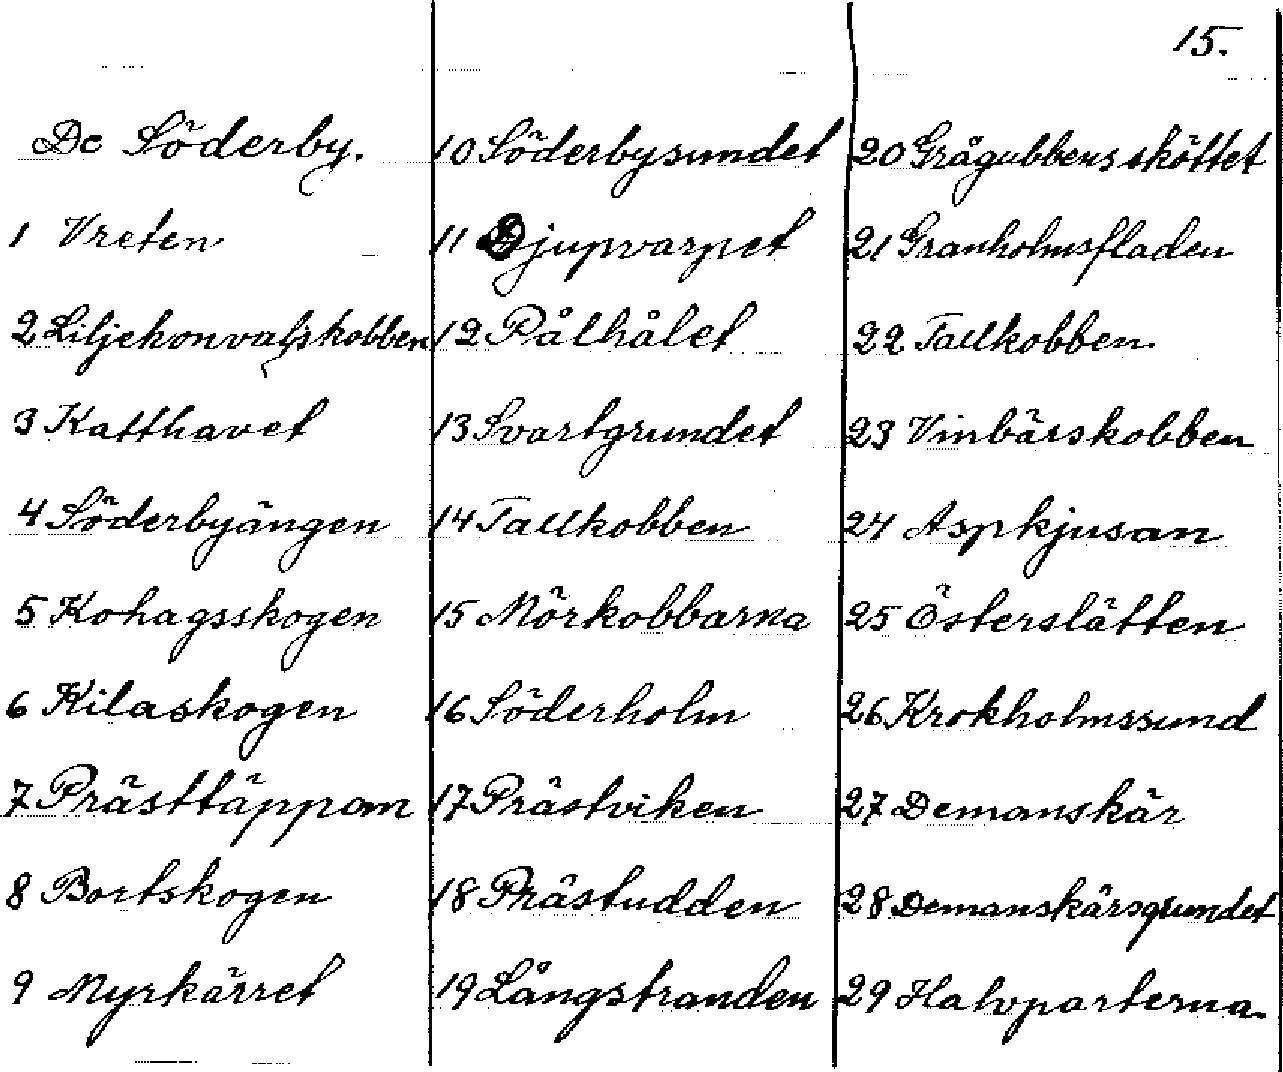 15.
De Söderby.
1 Vreten
2 Liljekonvaljskobben
3 Katthavet
4 Söderbyängen
5 Kohagsskogen
6 Kilaskogen
7 Prästtäppom
8 Bortskogen
9 Myrkärret
10 Söderbysundet
11 Djupvarpet
12 Pålhålet
13 Svartgrundet
14 Tallkobben
15 Mörkobbarna
16 Söderholm
17 Prästviken
18 Prästudden
19 Långstranden
20 Grågubbens sköttet
21 Granholmsfladen
22 Tallkobben
23 Vinbärskobben
24 Aspkjusan
25 Österslätten
26 Krokholmssund
27 Demanskär
28 Demanskärsgrundet
29 Halvparterna